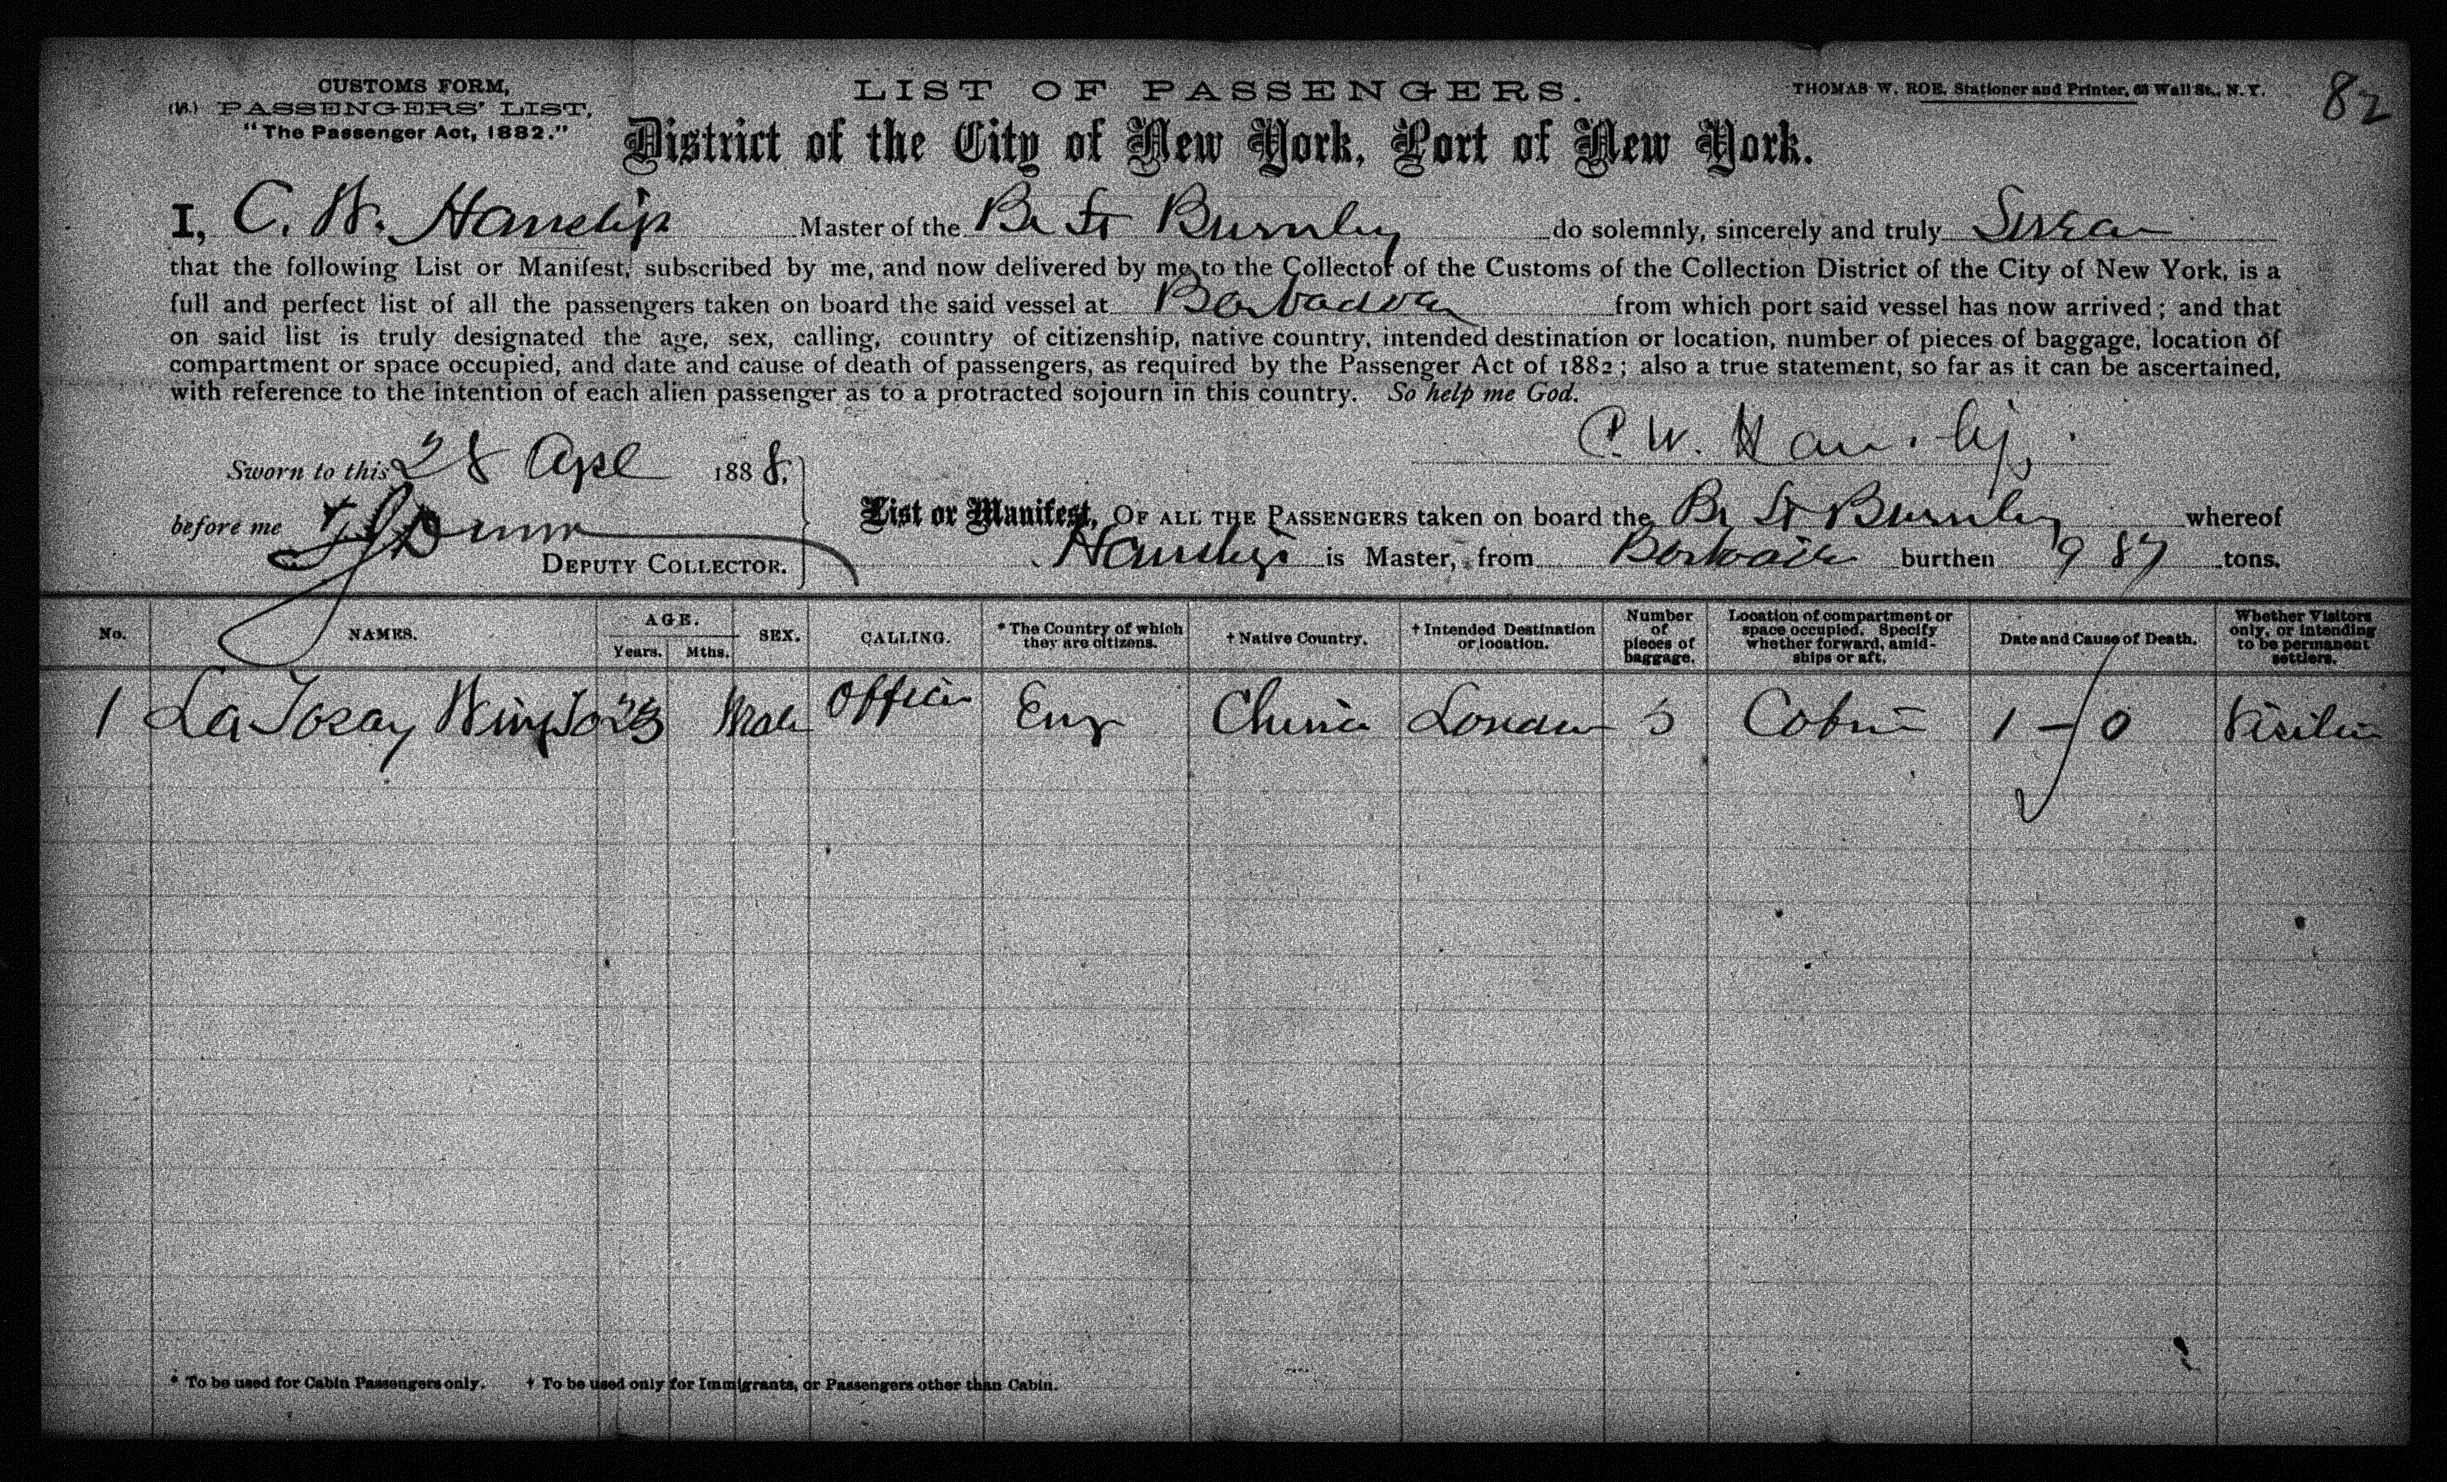 CUSTOMS FORM,
PASSENGERS' LIST,
"The Passenger Act, 1882."
LIST OF PASSENGERS.
THOMAS W. ROE, Stationer and Printer, 63 Wall St., N. Y.
82
District of the City of New York, Port of New York.
I, C. W. Master of the Br St Burnley do solemnly, sincerely and truly Swear
that the following List or Manifest, subscribed by me, and now delivered by me to the Collector of the Customs of the Collection District of the City of New York, is a
full and perfect list of all the passengers taken on board the said vessel at Barbadoes from which port said vessel has now arrived; and that
on said list is truly designated the age, sex, calling, country of citizenship, native country, intended destination or location, number of pieces of baggage, location of
compartment or space occupied, and date and cause of death of passengers, as required by the Passenger Act of 1882; also a true statement, so far as it can be ascertained,
with reference to the intention of each alien passenger as to a protracted sojourn in this country. So help me God.
C. W.
Sworn to this 28 Apl 1888,
before me
DEPUTY COLLECTOR.
List or Manifest, OF ALL THE PASSENGERS taken on board the Br St Burnley whereof
is Master, from burthen 987 tons.
No. NAMES. AGE. Years. Mths. SEX. CALLING. * The Country of which they are citizens. † Native Country. † Intended Destination or location. Number of pieces of baggage. Location of compartment or space occupied. Specify whether forward, amidships or aft. Date and Cause of Death. Whether Visitors only, or intending to be permanent settlers.
1 La 23 Male Officer Eng China London Cabin 1 - 0
* To be used for Cabin Passengers only. † To be used only for Immigrants, or Passengers other than Cabin.